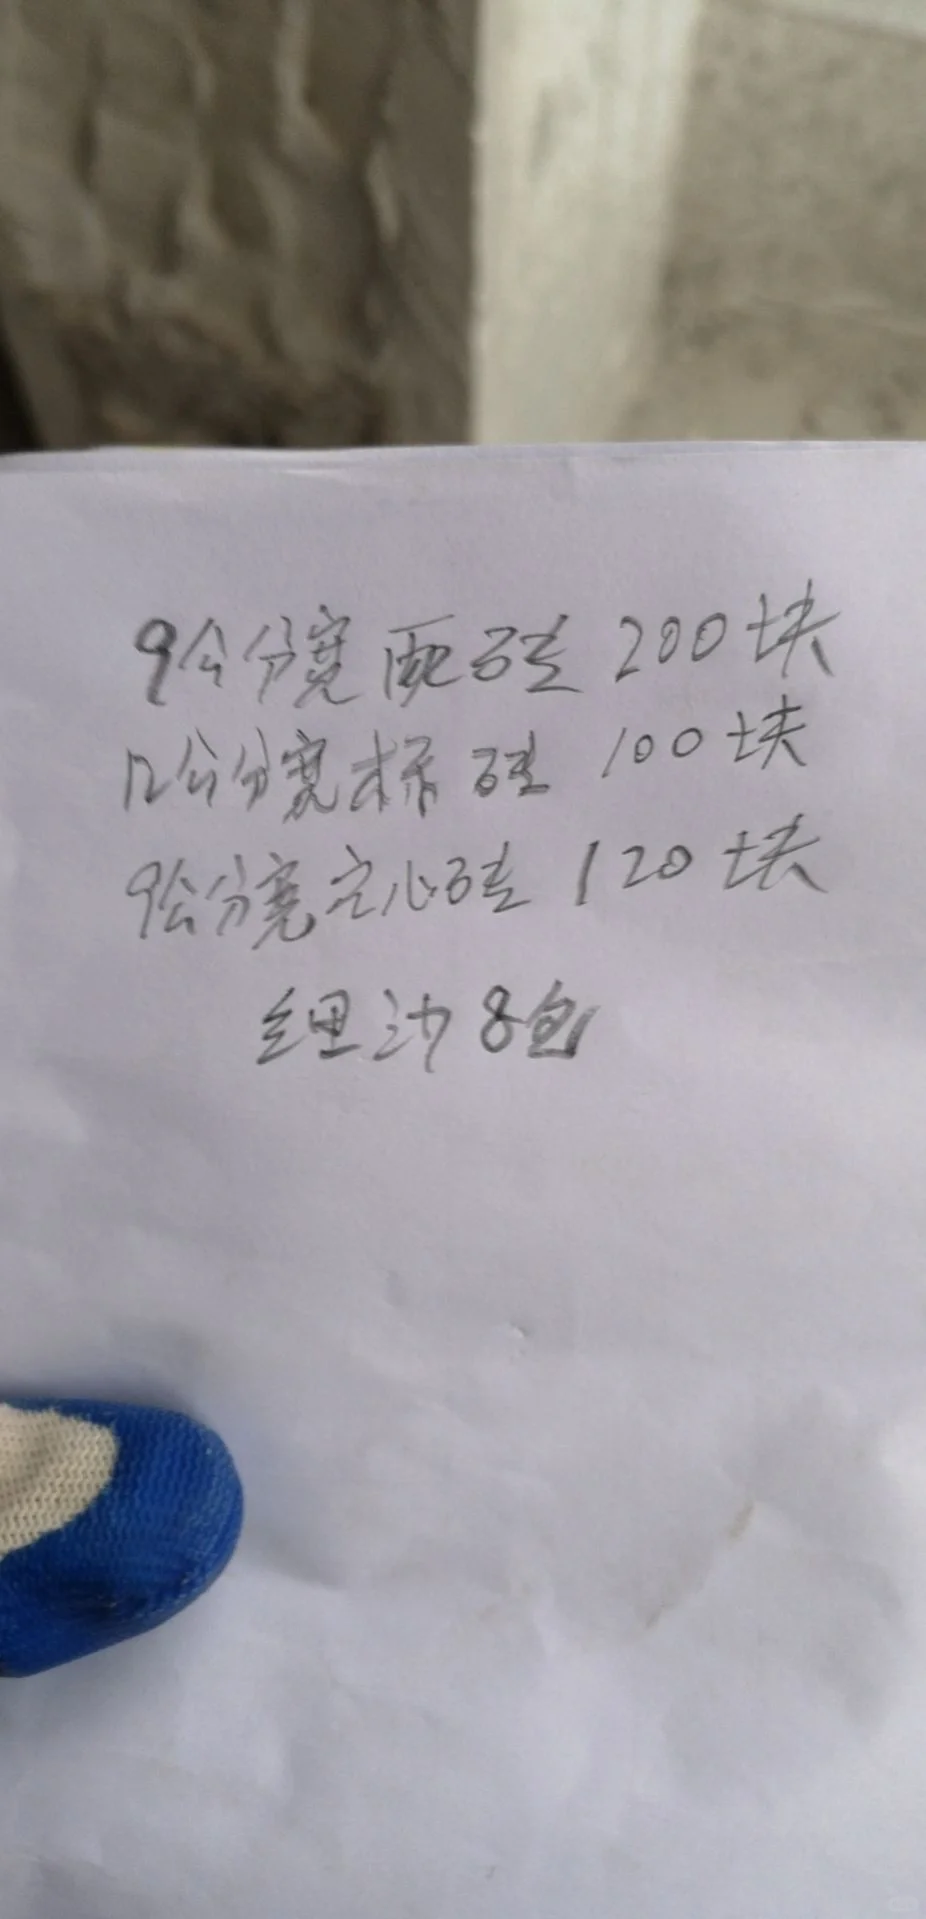 9公分宽配砖 200块
12公分宽标砖 100块
9公分宽空心砖 120块
细沙8包